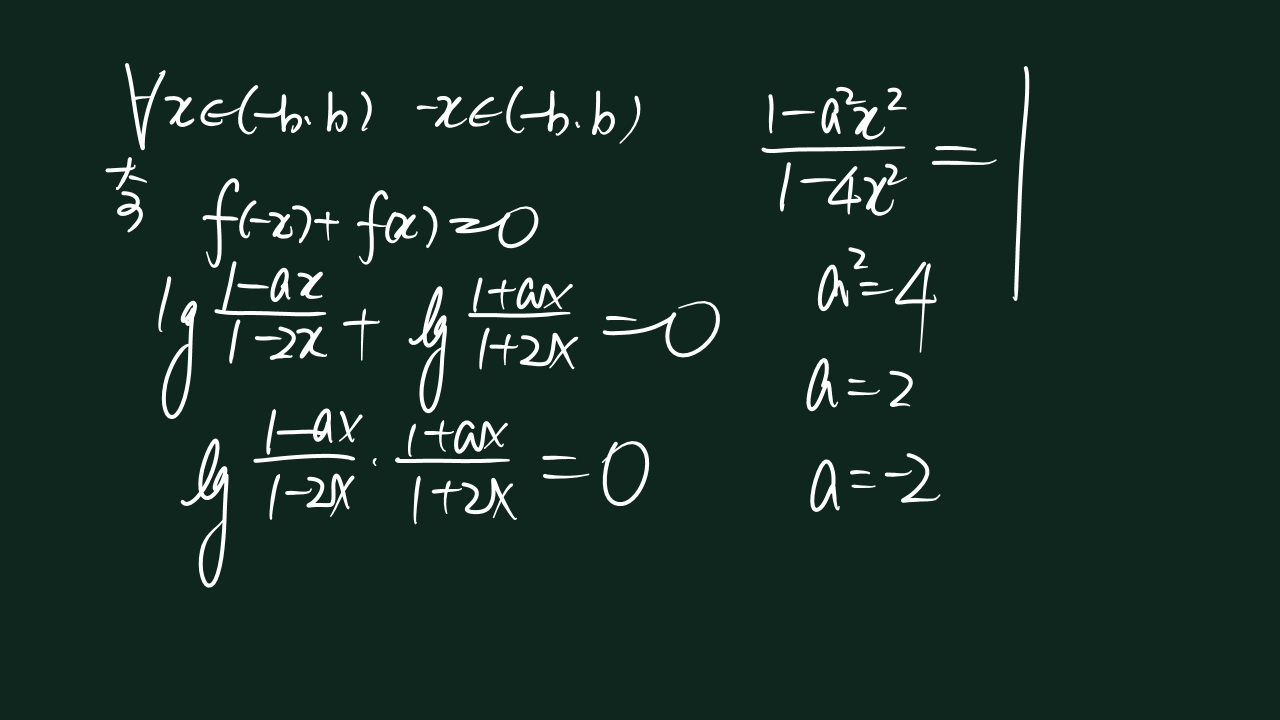 ∀x∈(-b.b) -x∈(-b.b)
奇 f(-x)+f(x)=0
lg (1-ax)/(1-2x) + lg (1+ax)/(1+2x) =0
lg (1-ax)/(1-2x) · (1+ax)/(1+2x) =0
(1-a²x²)/(1-4x²) = 1
a²=4
a=2
a=-2